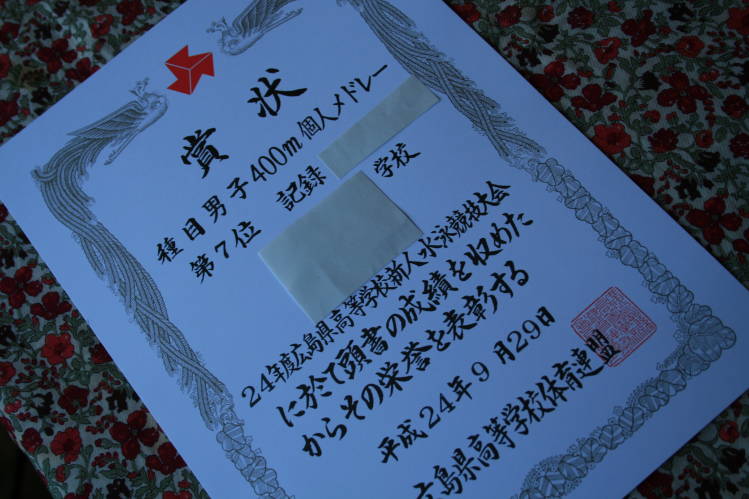 賞状
種目 男子400m個人メドレー
第7位 記録
学校
24年度広島県高等学校新人水泳競技大会
に於て頭書の成績を収めた
からその栄誉を表彰する
平成24年9月29日
広島県高等学校体育連盟